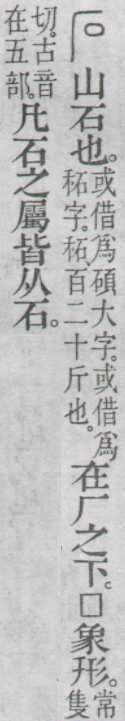 石 山石也。或借爲碩大字。或借爲䄷字。䄷、百二十斤也。在厂之下。口象形。常隻
切。古音在五部。凡石之屬皆从石。